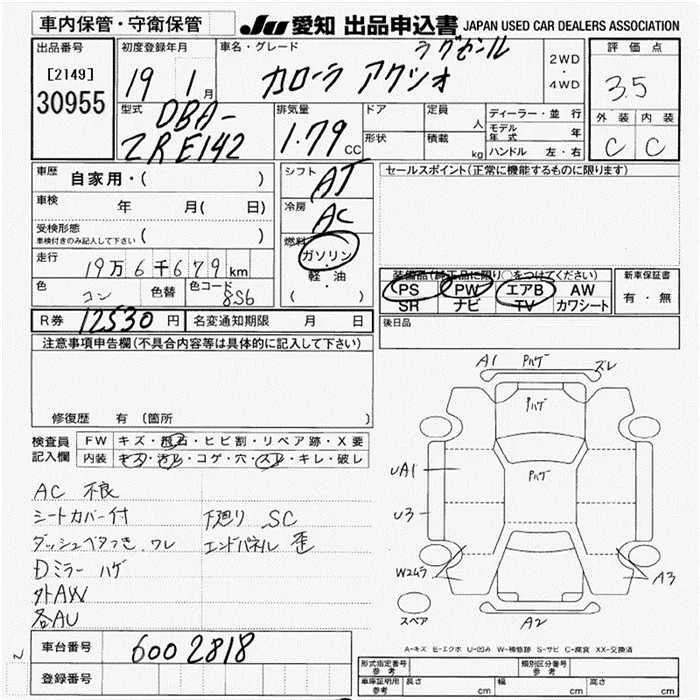 車内保管・守衛保管
JU 愛知 出品申込書 JAPAN USED CAR DEALERS ASSOCIATION
出品番号
[2149]
30955
初度登録年月
19 1月
車名・グレード
カローラ アクシオ ラグゼール
2WD
・
4WD
評価点
3.5
外装 内装
C C
型式
DBA-
ZRE142
排気量
1.79 CC
ドア
形状
定員 人
積載 kg
ディーラー・並行
モデル年式 年
ハンドル 左・右
車歴
自家用・( )
車検
年 月( 日)
受検形態
車検付きのみ記入して下さい ( )
走行
19万6千679km
色
コン
色替
色コード
8S6
シフト
AT
冷房
AC
燃料
ガソリン
・
軽・油
( )
セールスポイント(正常に機能するものに限ります)
装備品(純正品に限り○をつけてください)
PS PW エアB AW
SR ナビ TV カワシート
新車保証書
有・無
R券 12530円 名変通知期限 月 日
後日品
注意事項申告欄(不具合内容等は具体的に記入して下さい)
修復歴 有 (箇所 )
検査員
記入欄
FW キズ・飛石・ヒビ割・リペア跡・X要
内装 キズ・汚レ・コゲ・穴・スレ・キレ・破レ
AC 不良
シートカバー付 下廻り SC
ダッシュベタつき.ワレ エンドパネル 歪
Dミラー ハゲ
外AW
各AU
A1 Pハゲ ズレ
Pハゲ
UA1 Pハゲ
U3
W2ムラ A3
スペア
A2
A-キズ E-エクボ U-凹み W-補修跡 S-サビ C-腐食 XX-交換済
車台番号
600 2818
登録番号
形式指定番号
参考
類別区分番号
参考
車庫証明用
参考
長さ cm 幅 cm 高さ cm